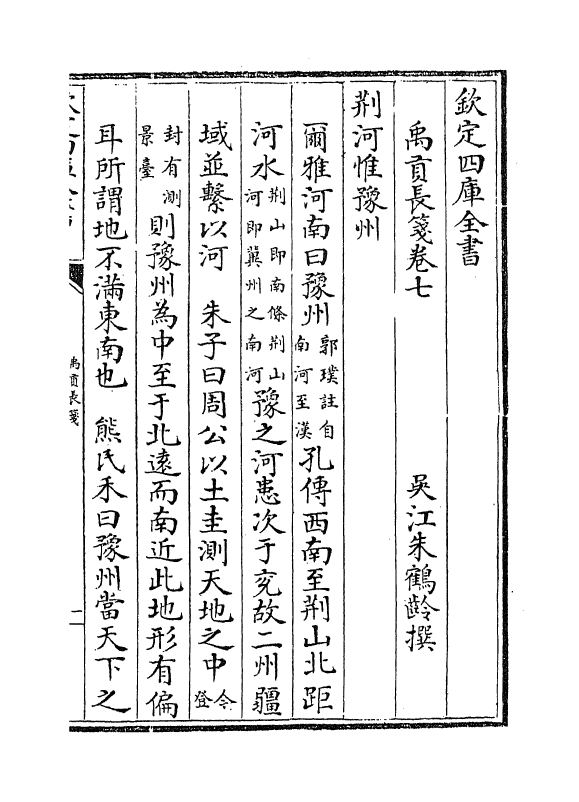 欽定四庫全書
禹貢長箋卷七
吳江朱鶴齡撰
荆河惟豫州
爾雅河南曰豫州郭璞註自南河至漢孔傳西南至荆山北距
河水荆山即南條荆山河即冀州之南河豫之河患次于兖故二州疆
域並繫以河　朱子曰周公以土圭測天地之中今登
封有測景臺則豫州為中至于北遠而南近此地形有偏
耳所謂地不滿東南也　熊氏禾曰豫州當天下之
禹貢長箋
一